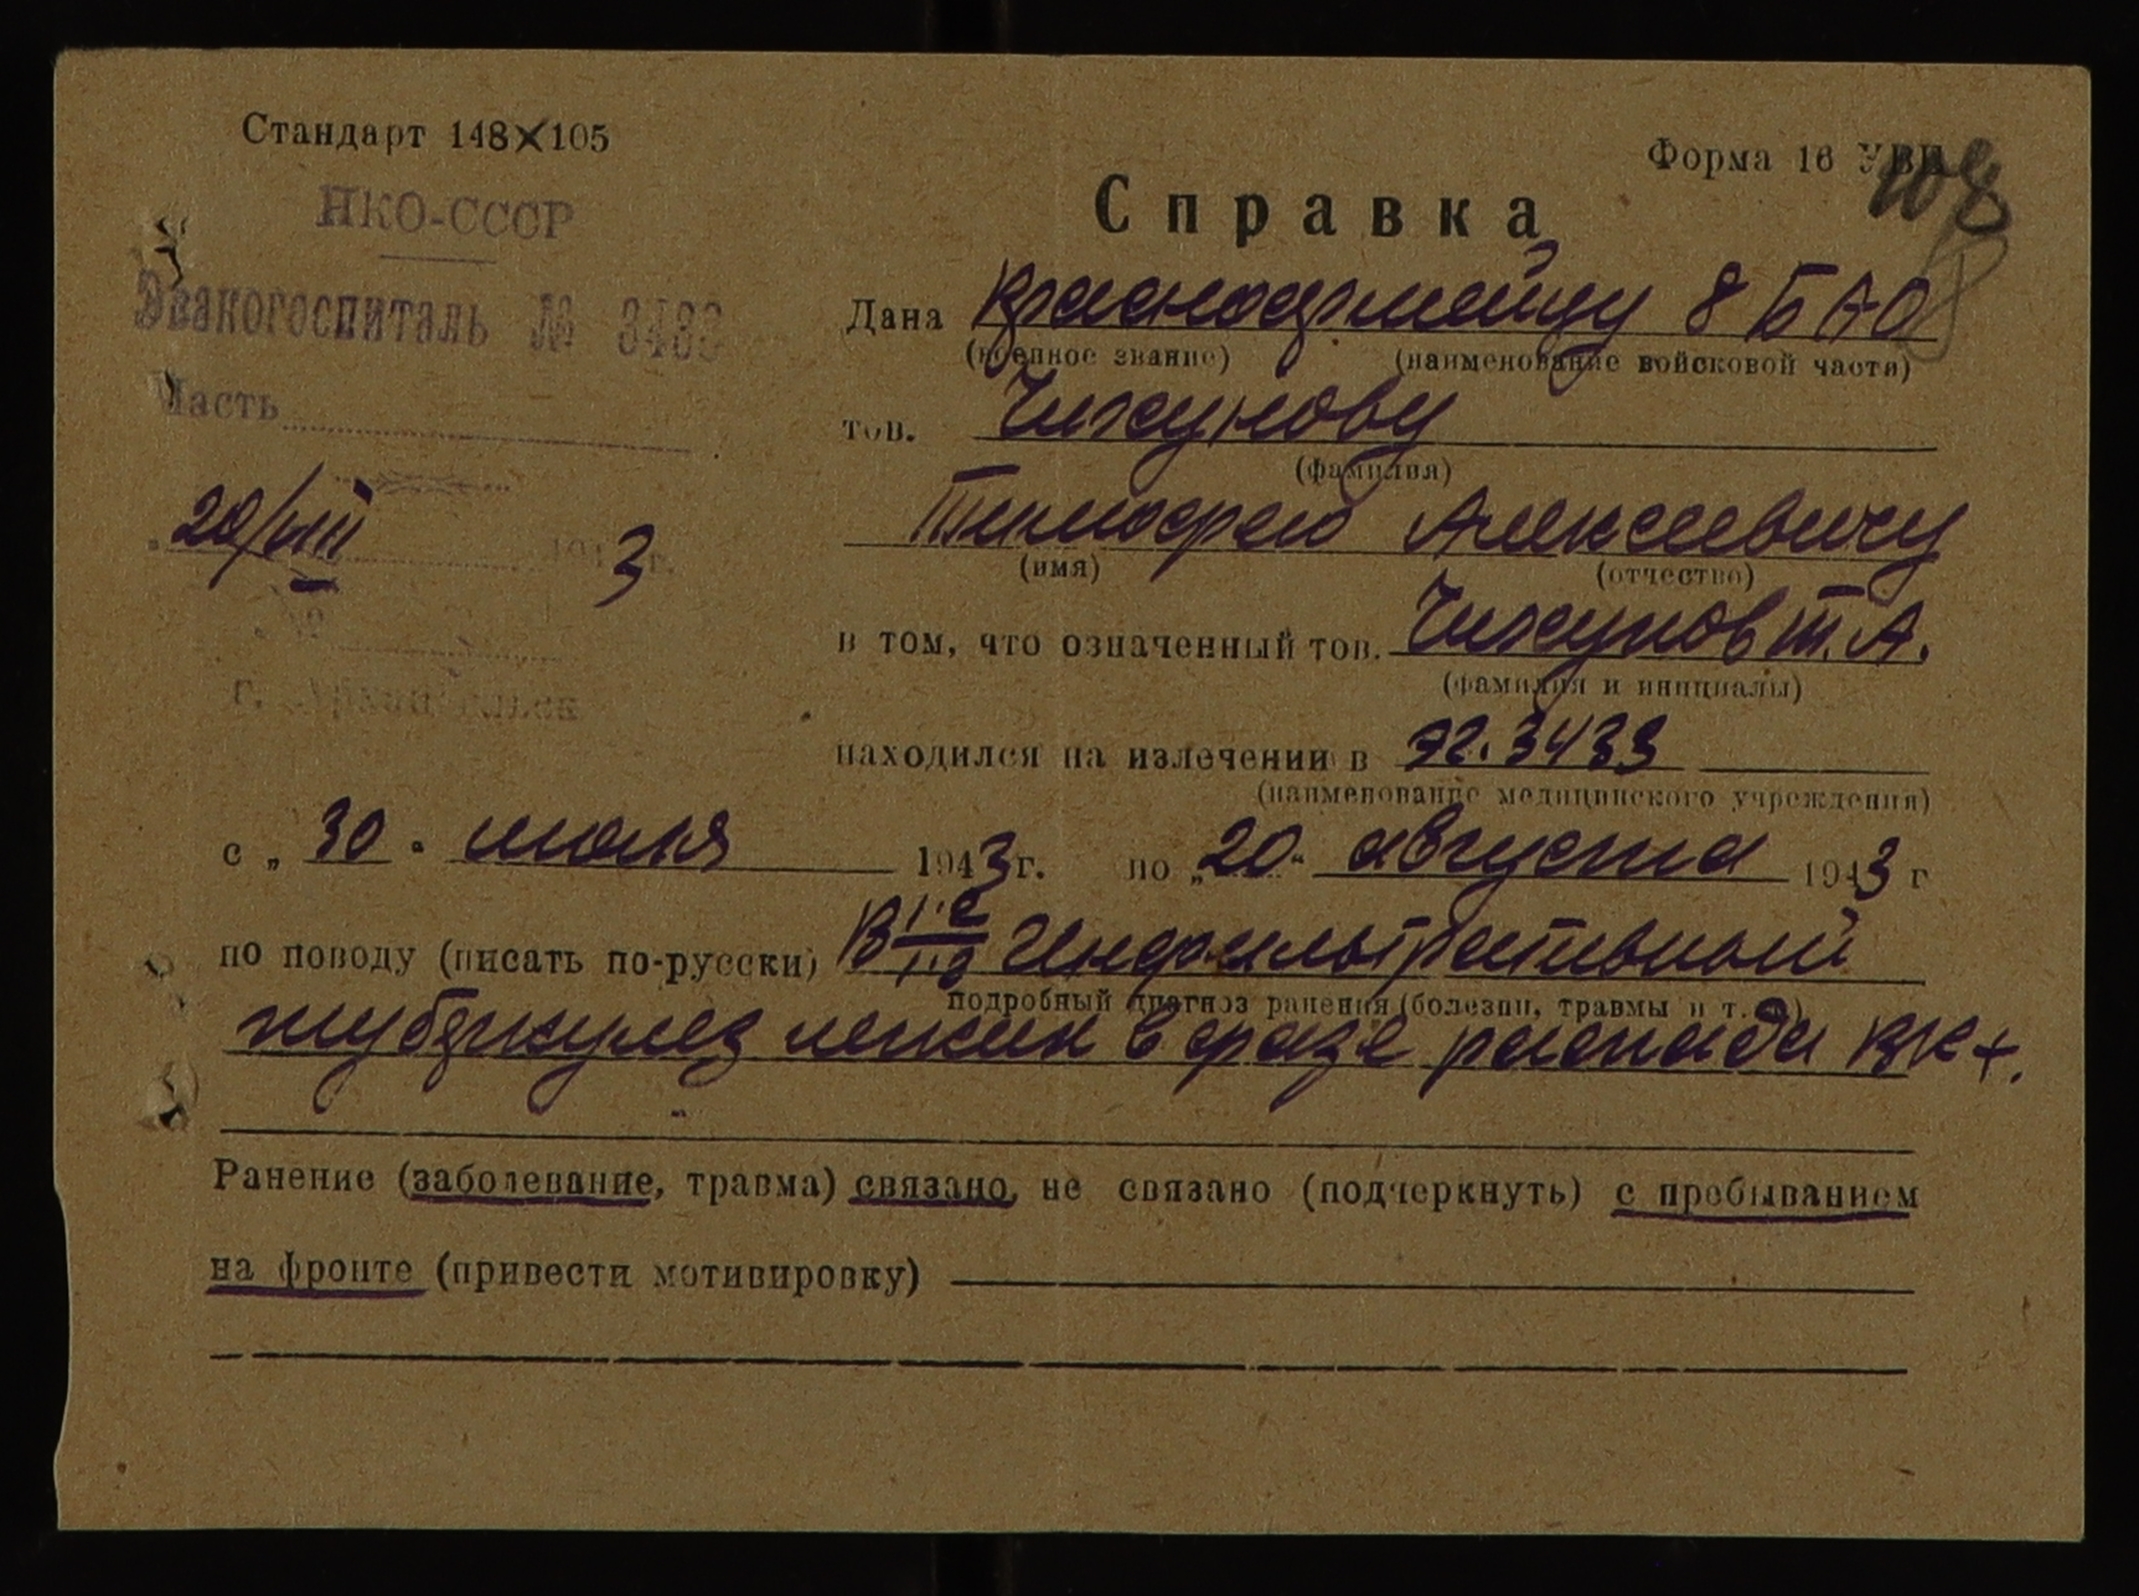 Стандарт 148×105
Форма 16 УВГ
108
НКО-СССР
Справка
Эвакогоспиталь № 3439
Дана красноармейцу 8 БАО
(военное звание) (наименование войсковой части)
Часть
тов. Чижунову
(фамилия)
20/VIII 1943 г.
Тимофею Алексеевичу
(имя) (отчество)
в том, что означенный тов. Чижунов Т. А.
(фамилия и инициалы)
г.
находился на излечении в эг. 3439
(наименование медицинского учреждения)
с „30" июля 1943 г. по „20" августа 1943 г
по поводу (писать по-русски) В Инфильтративный
подробный диагноз ранения (болезни, травмы и т. д.)
туберкулез легких в фазе распада ВК+.
Ранение (заболевание, травма) связано, не связано (подчеркнуть) с пребыванием
на фронте (привести мотивировку)